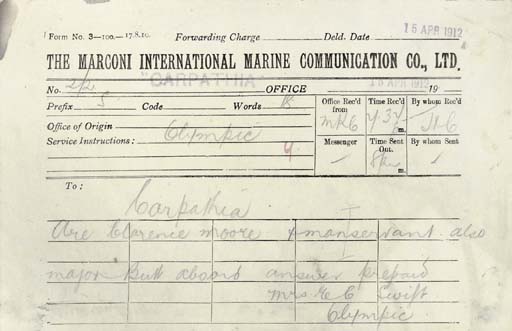 Form No. 3—100.—17.8.10. Forwarding Charge Deld. Date 15 APR 1912
THE MARCONI INTERNATIONAL MARINE COMMUNICATION CO., LTD.
No. 2/2 "CARPATHIA" OFFICE 15 APR 1912 19
Prefix S Code Words 18
Office of Origin Olympic
Service Instructions:
Office Rec'd from Time Rec'd By whom Rec'd
MKC m.
Messenger Time Sent Out. By whom Sent
m.
To:
Carpathia
Are Clarence Moore & manservant also
major Butt aboard answer prepaid
Mrs E C Swift
Olympic